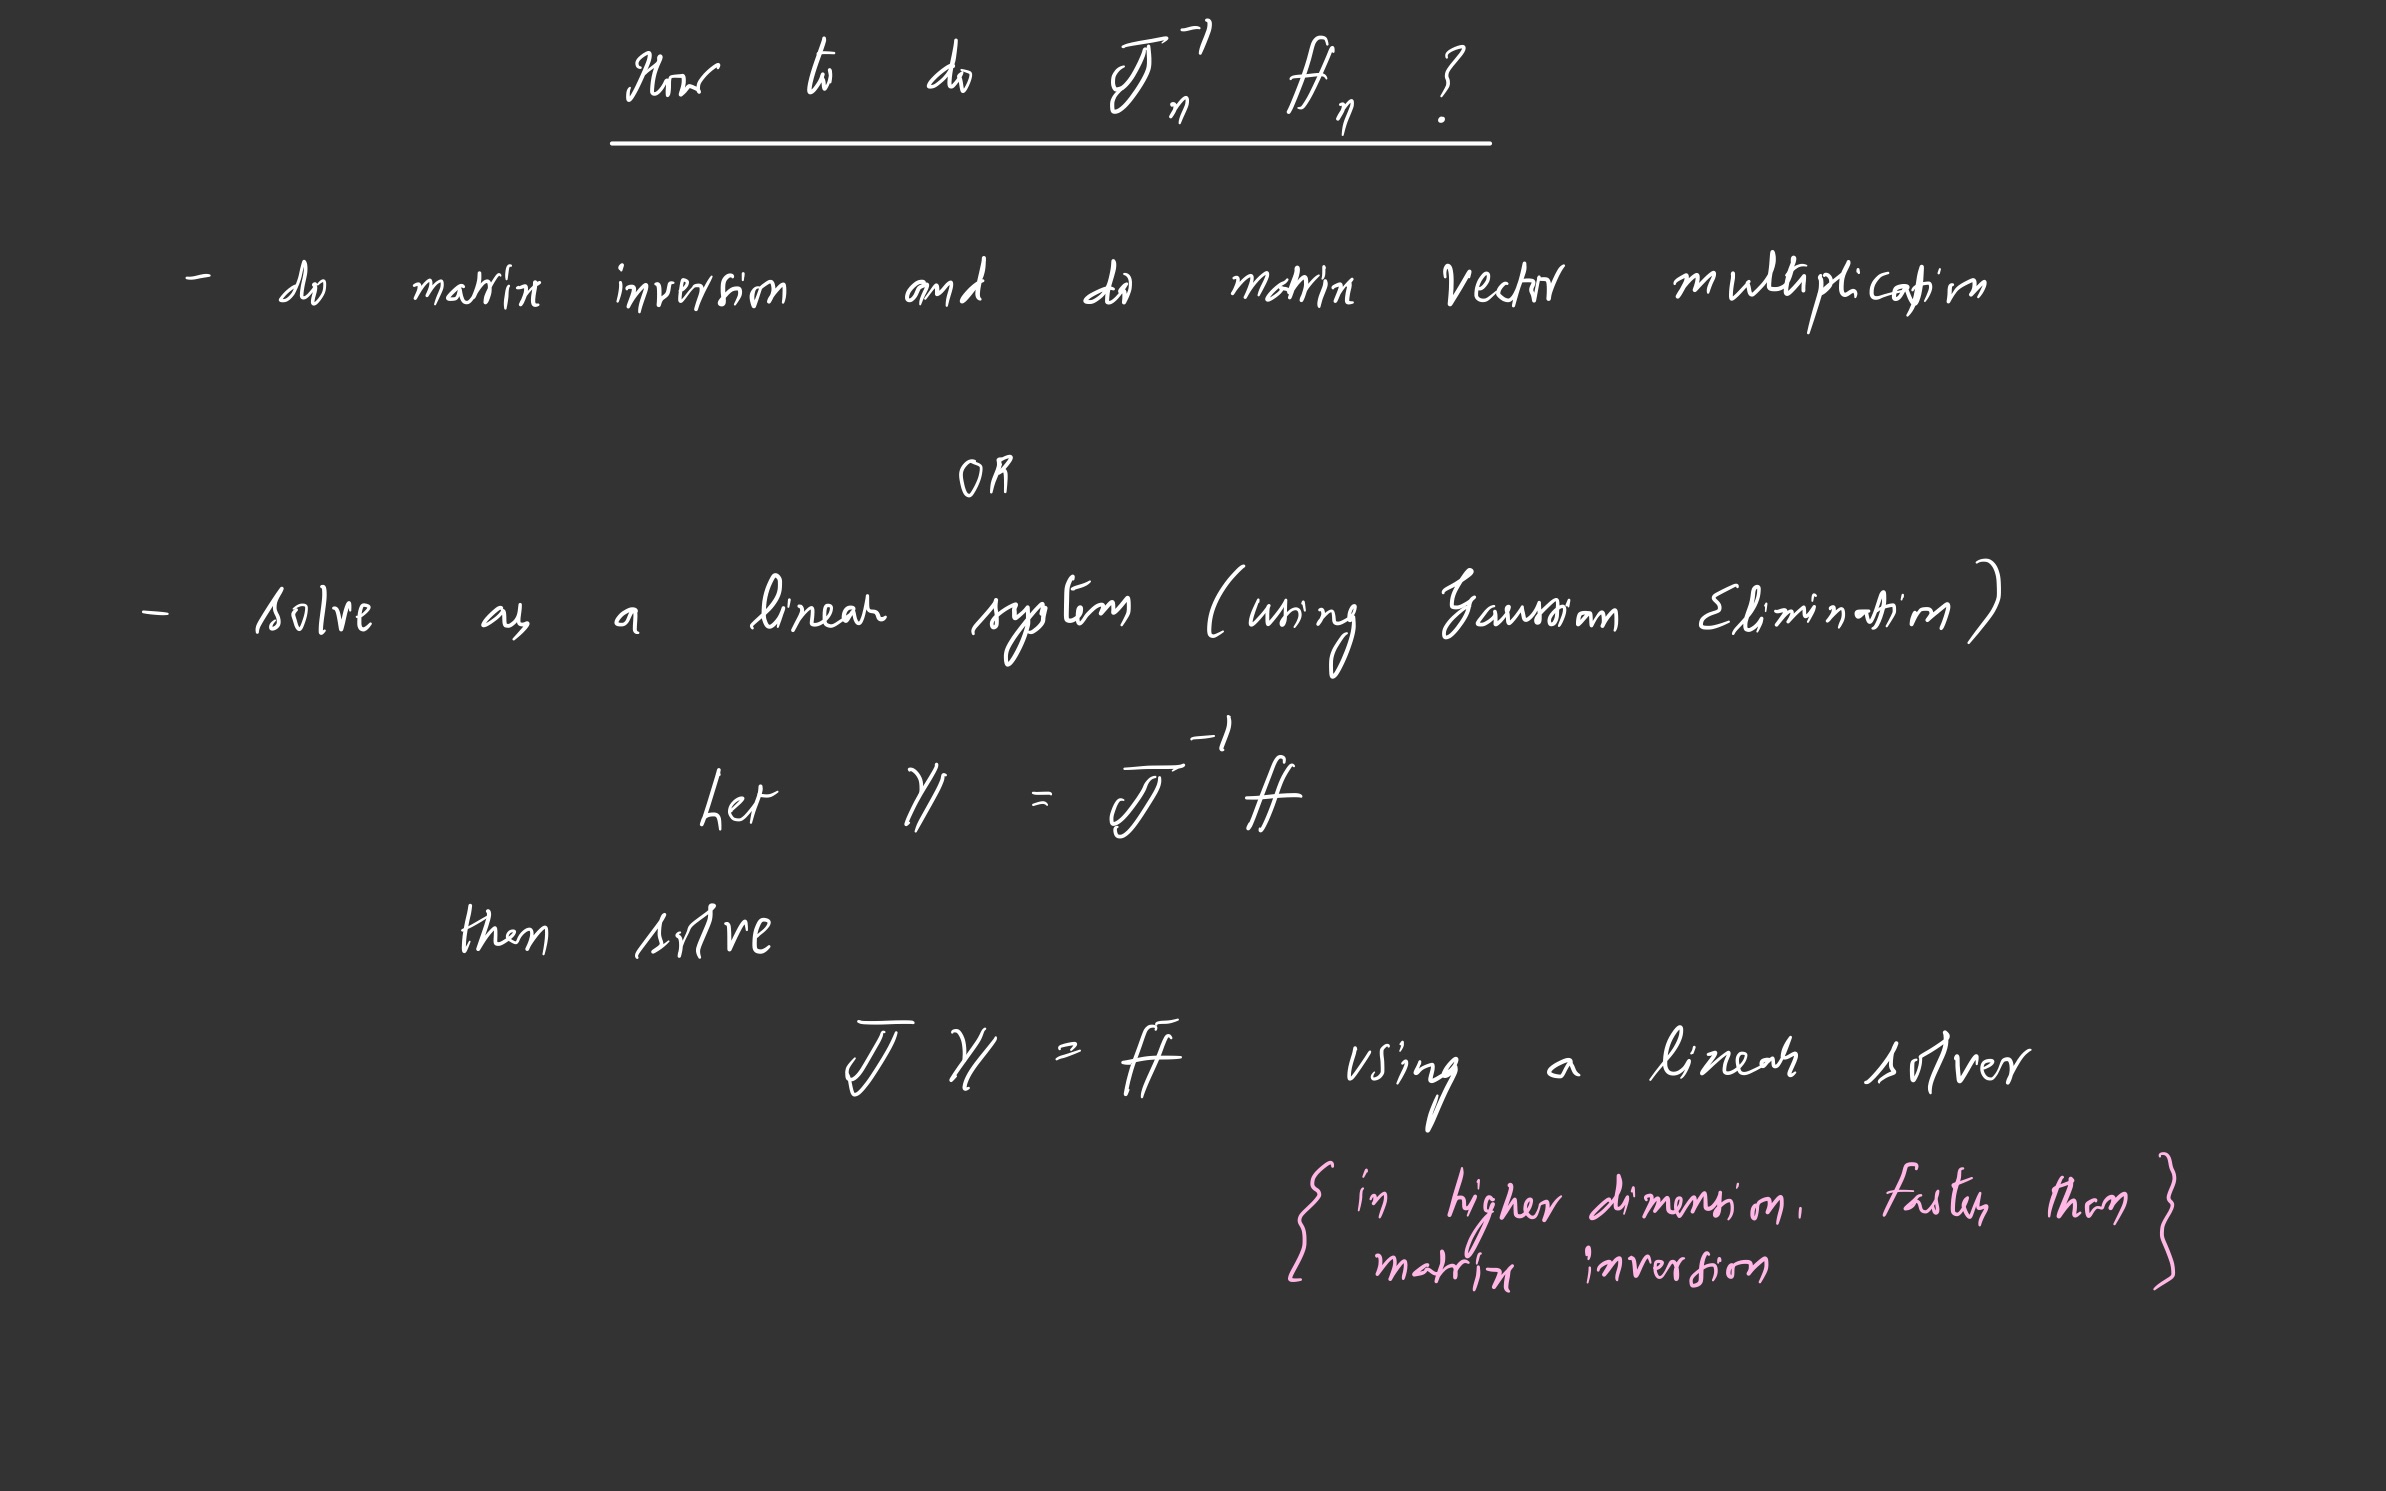 How to do J̄ₙ⁻¹ fₙ ?
- do matrix inversion and do matrix vector multiplication
OR
- solve as a linear system (using Gaussian Elimination)
Let y = J̄⁻¹ f
then solve
J̄ y = f using a linear solver
{ in higher dimension, faster than }
matrix inversion